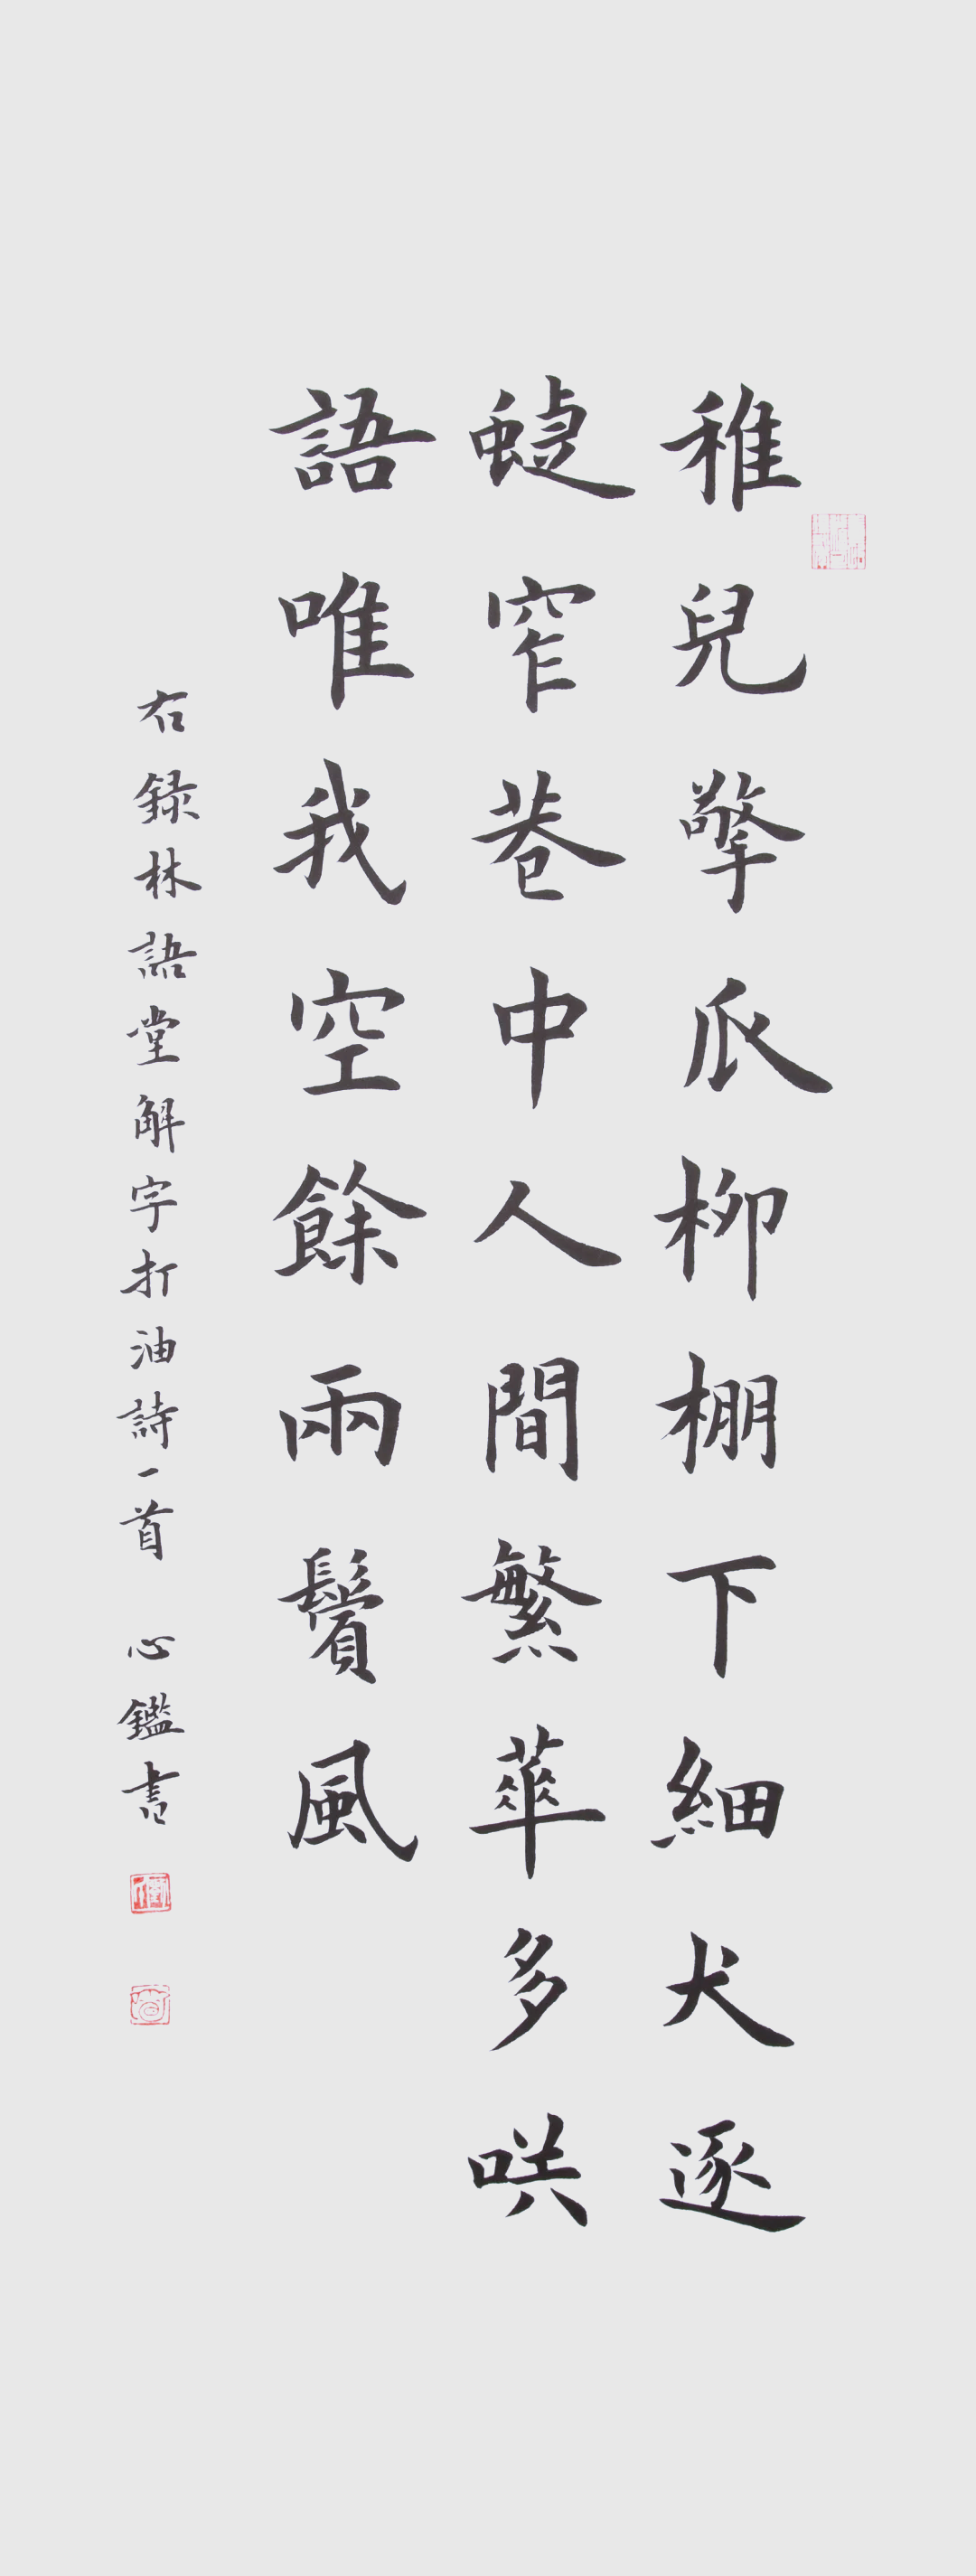 稚兒擎瓜柳棚下細犬逐
蜨窄巷中人間繁華多咲
語唯我空餘兩鬢風
右録林語堂解字打油詩一首 心鑑書